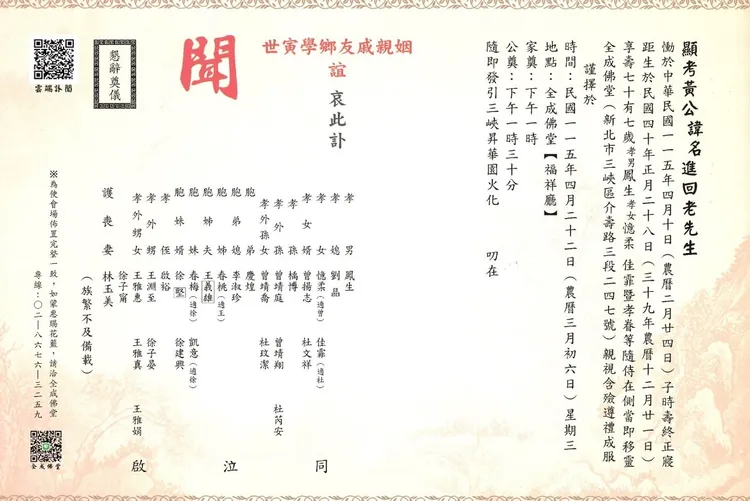 顯考黃公諱名進回老先生
慟於中華民國一一五年四月十日（農曆二月廿四日）子時壽終正寢
距生於民國四十年正月二十八日（三十九年農曆十二月廿一日）
享壽七十有七歲 孝男 鳳生 孝女 憶柔 佳霏暨孝眷等隨侍在側當即移靈
全成佛堂（新北市三峽區介壽路三段二四七號）親視含殮遵禮成服
謹擇於
時間：民國一一五年四月二十二日（農曆三月初六日）星期三
地點：全成佛堂【福祥廳】
家奠：下午一時
公奠：下午一時三十分
隨即發引三峽昇華園火化
叨在
姻親戚友鄉學寅世
誼
哀此訃
聞
孝男 鳳生
孝媳 劉晶
孝女 憶柔（適曾） 佳霏（適杜）
孝女婿 曾揚志 杜文祥
外孫 楀博
孝外孫 曾靖庭 曾靖翔 杜芮安
孝外孫女 曾靖喬 杜玟潔
胞弟 慶煌
胞弟媳 李淑珍
胞姊 春桃（適王）
胞姊夫 王義雄
胞妹 春梅（適徐） 凱意（適徐）
胞妹婿 徐堅 徐建興
孝姪 啟裕
孝外甥 王淵至 徐子晏
孝外甥女 王雅惠 王雅真 王雅娟
徐子甯
護喪妻 林玉美
同泣啟
（族繁不及備載）
懇辭奠儀
雲端訃聞
※為使會場佈置完整一致，如蒙惠賜花籃，請洽全成佛堂
專線：〇二-八六七六-三二五九
全成佛堂